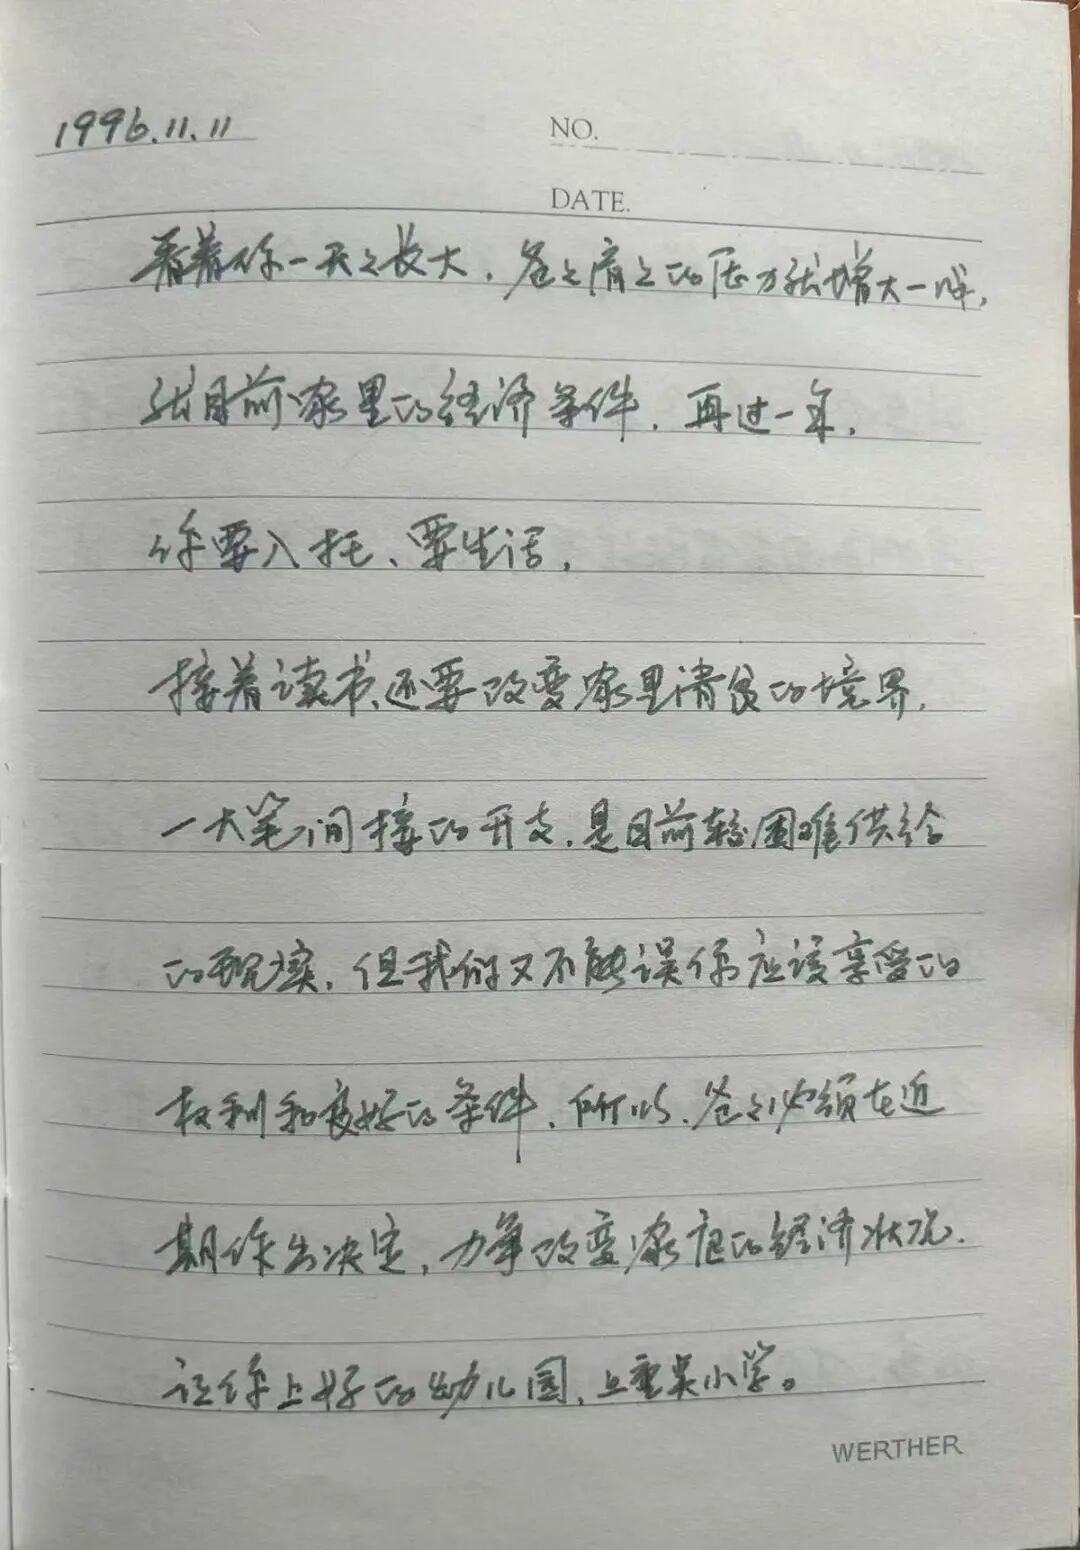 1996.11.11
NO.
DATE.
看着你一天天长大，爸爸肩上的压力就增大一成，
就目前家里的经济条件，再过一年，
你要入托、要生活，
接着读书、还要改变家里清贫的境界，
一大笔间接的开支，是目前较困难供给
的现实，但我们又不能误你应该享受的
权利和良好的条件，所以，爸爸必须在近
期作出决定，力争改变家庭的经济状况，
让你上好的幼儿园，上重点小学。
WERTHER